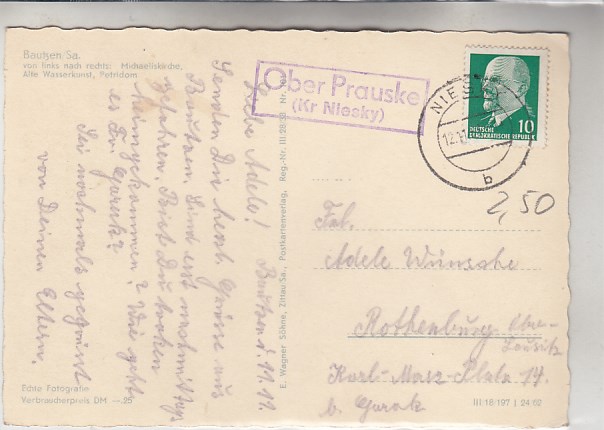 Bautzen/Sa.
von links nach rechts: Michaeliskirche,
Alte Wasserkunst, Petridom
Ober Prauske
(Kr Niesky)
NIESKY
12.11.
b
10
DEUTSCHE
DEMOKRATISCHE REPUBLIK
2,50
Bautzen d. 11.11.
Liebe Adele!
Senden Dir herzl. Grüße aus
Bautzen. Sind erst nachmittags
gefahren. Bist Du
heimgekommen? Wie geht
es Frl. Gerak?
Sei nochmals gegrüßt
von Deinen Eltern.
E. Wagner Söhne, Zittau/Sa., Postkartenverlag, Reg.-Nr. III/28/58
Adele Wünsche
Rothenburg Ober-
Lausitz
Karl-Marx-Platz 14.
b. Gerak
Echte Fotografie
Verbraucherpreis DM —.25
III/18/197 I 24 62